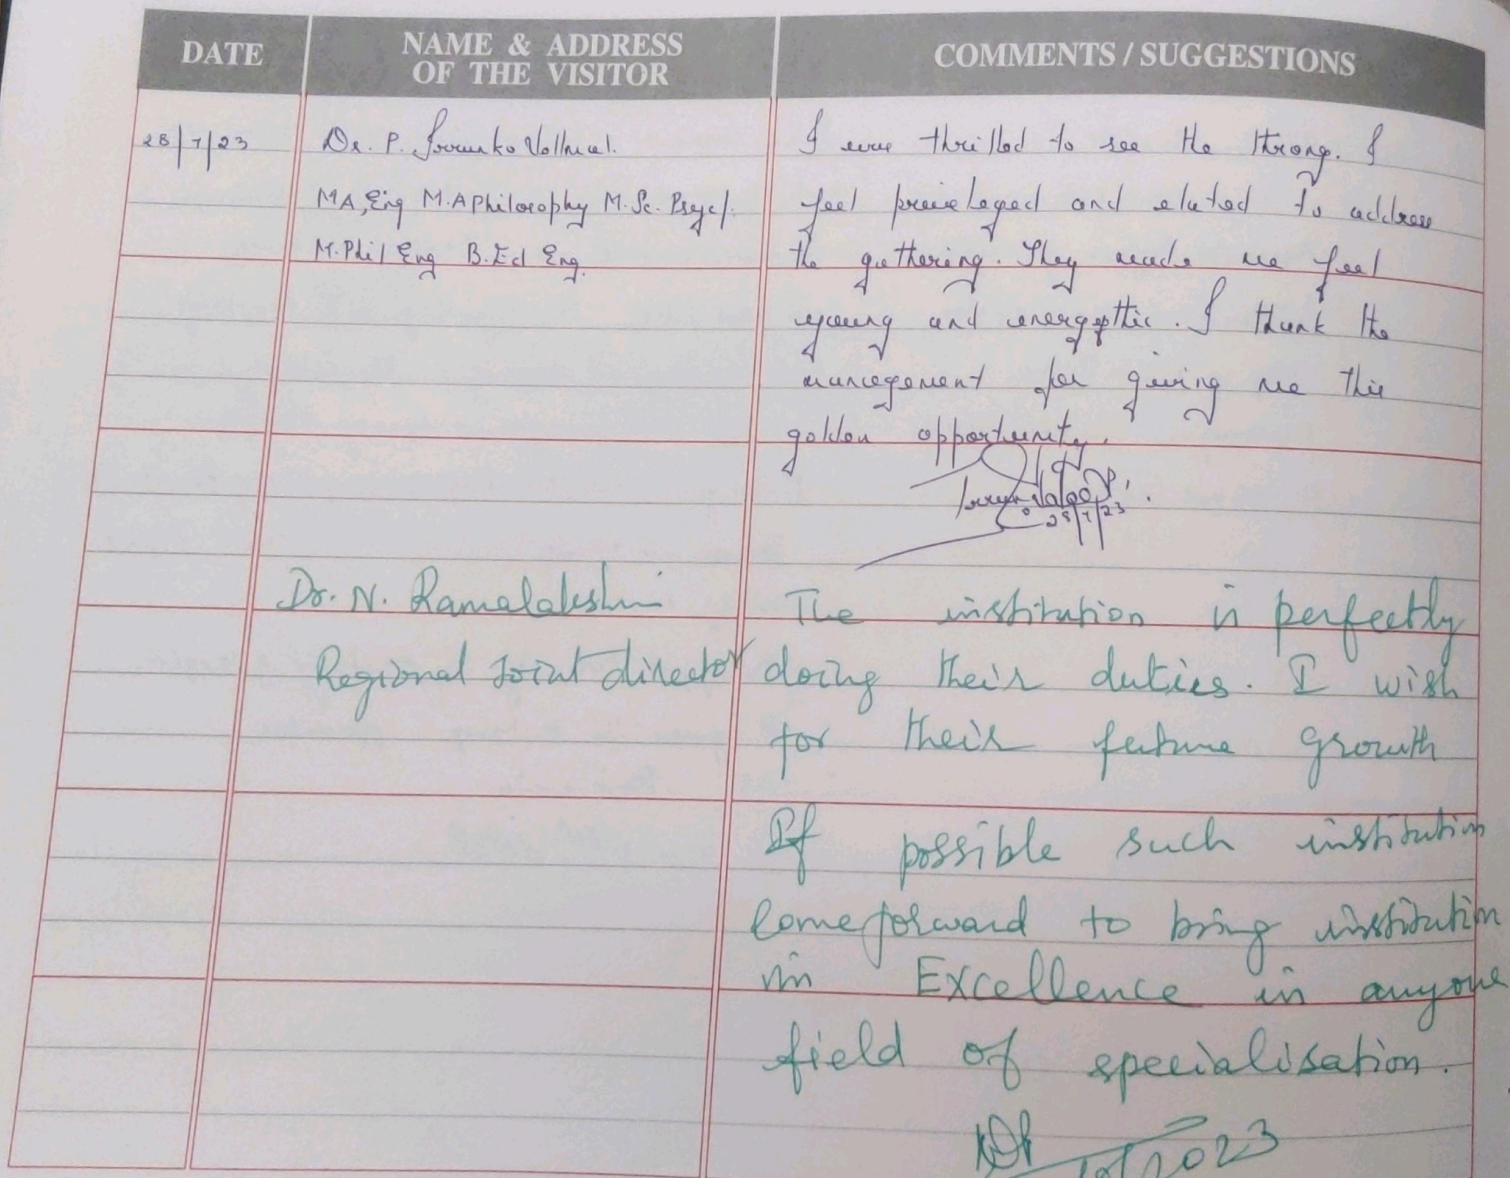 DATE
NAME & ADDRESS
OF THE VISITOR
COMMENTS / SUGGESTIONS
28/7/23
Dr. P.
MA, Eng M.A Philosophy M.Sc. Psycl.
M.Phil Eng B.Ed Eng.
I was thrilled to see the throng. I
feel previleged and elated to address
the gathering. They made me feel
young and energetic. I thank the
management for giving me this
golden opportunity.
28/7/23
Dr. N. Ramalakshmi
Regional Joint director
The institution is perfectly
doing their duties. I wish
for their future growth
If possible such institution
Come forward to bring institution
in Excellence in anyone
field of specialisation.
2023